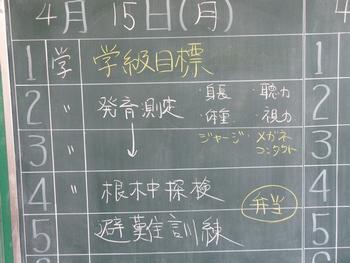 4月 15日(月)
1 学 学級目標
2 〃 発育測定 ・身長 ・聴力
・体重 ・視力
3 ↓ ジャージ・メガネ
コンタクト
4 〃 根木中探検
5 避難訓練 弁当
4
1
2
3
4
5